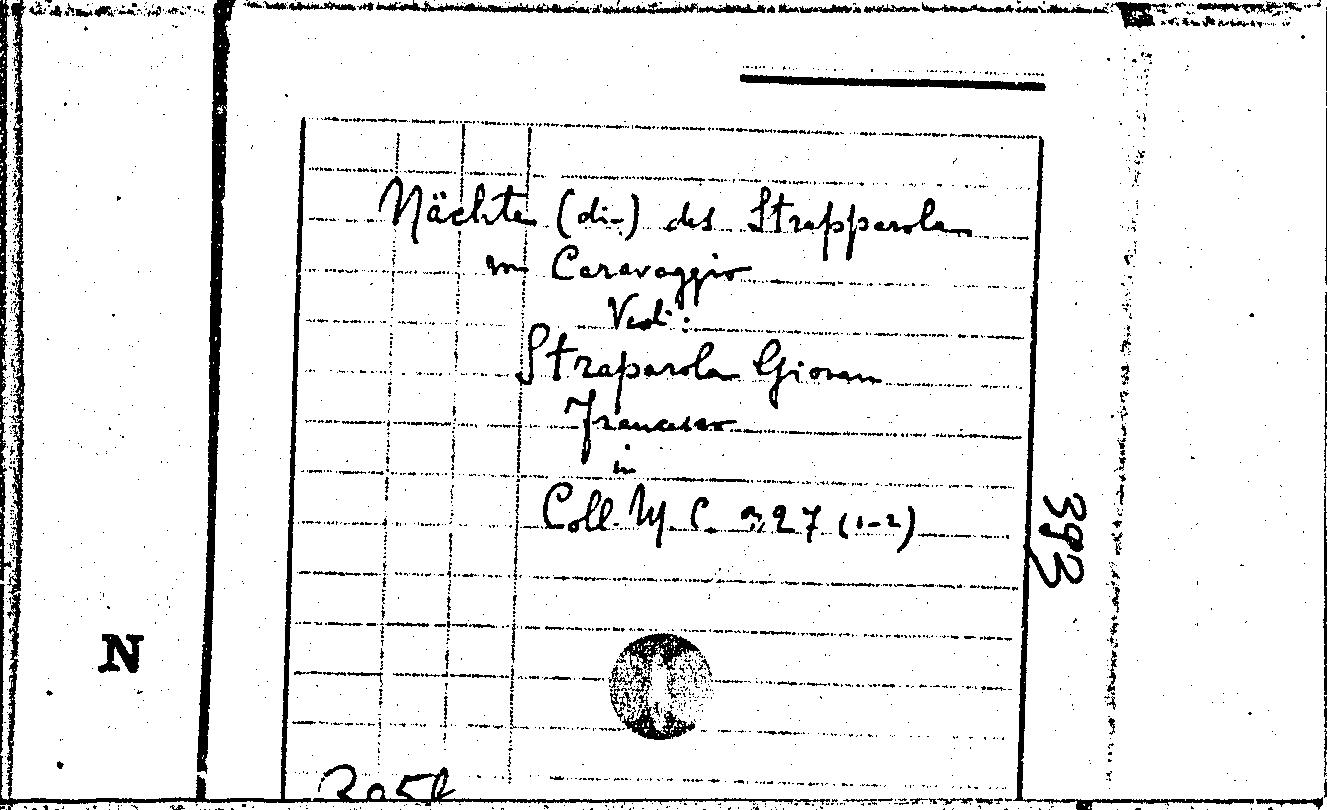 Nächte (die) des Strapparola
von Caravaggio
Vedi:
Straparola Giovan
Francesco
in
Coll. M. C. 327 (1-2)
393
N